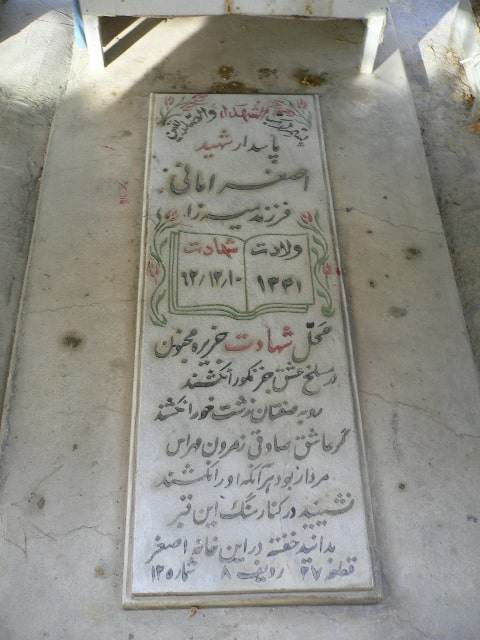 الشهداء والصدیقین
پاسدار شهید
اصغر امانی
فرزند میرزا
ولادت شهادت
۱۳۴۱ ۶۲/۱۲/۱۰
محل شهادت جزیره مجنون
در مسلخ عشق جز نکو را نکشند
روبه صفتان زشت خو را نکشند
گر عاشق صادقی ز مردن مهراس
مردار بود هر آنکه او را نکشند
نشینید در کنار سنگ این قبر
بدانید خفته در این خانه اصغر
قطعه ۲۷ ردیف ۸ شماره ۱۲۵